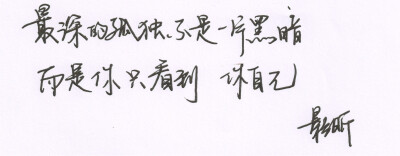 最深的孤独，不是一片黑暗
而是你只看到 你自己